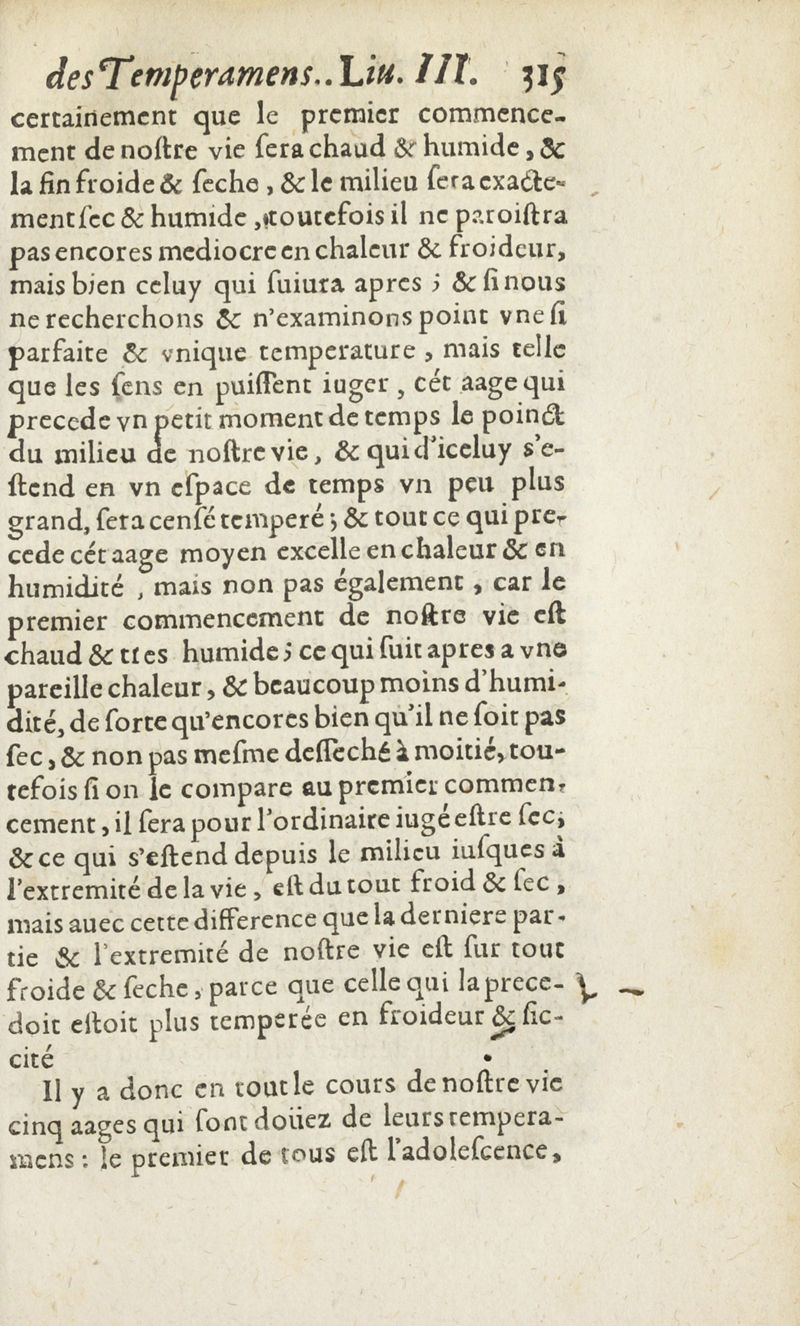 des Temperamens.. Liu. III. 315
certainement que le premier commence-
ment de noſtre vie ſera chaud & humide, &
la fin froide & ſeche, & le milieu ſera exacte-
ment ſec & humide, toutefois il ne paroiſtra
pas encores mediocre en chaleur & froideur,
mais bien celuy qui ſuiura apres ; & ſi nous
ne recherchons & n'examinons point vne ſi
parfaite & vnique temperature, mais telle
que les ſens en puiſſent iuger, cét aage qui
precede vn petit moment de temps le poinct
du milieu de noſtre vie, & qui d'iceluy s'e-
ſtend en vn eſpace de temps vn peu plus
grand, ſera cenſé temperé ; & tout ce qui pre-
cede cét aage moyen excelle en chaleur & en
humidité, mais non pas également, car le
premier commencement de noſtre vie eſt
chaud & tres humide ; ce qui ſuit apres a vne
pareille chaleur, & beaucoup moins d'humi-
dité, de ſorte qu'encores bien qu'il ne ſoit pas
ſec, & non pas meſme deſſeché à moitié, tou-
tefois ſi on le compare au premier commen-
cement, il ſera pour l'ordinaire iugé eſtre ſec;
& ce qui s'eſtend depuis le milieu iuſques à
l'extremité de la vie, eſt du tout froid & ſec,
mais auec cette difference que la derniere par-
tie & l'extremité de noſtre vie eſt ſur tout
froide & ſeche, parce que celle qui la prece-
doit eſtoit plus temperée en froideur & ſic-
cité
Il y a donc en tout le cours de noſtre vie
cinq aages qui ſont doüez de leurs tempera-
mens : le premier de tous eſt l'adoleſcence,